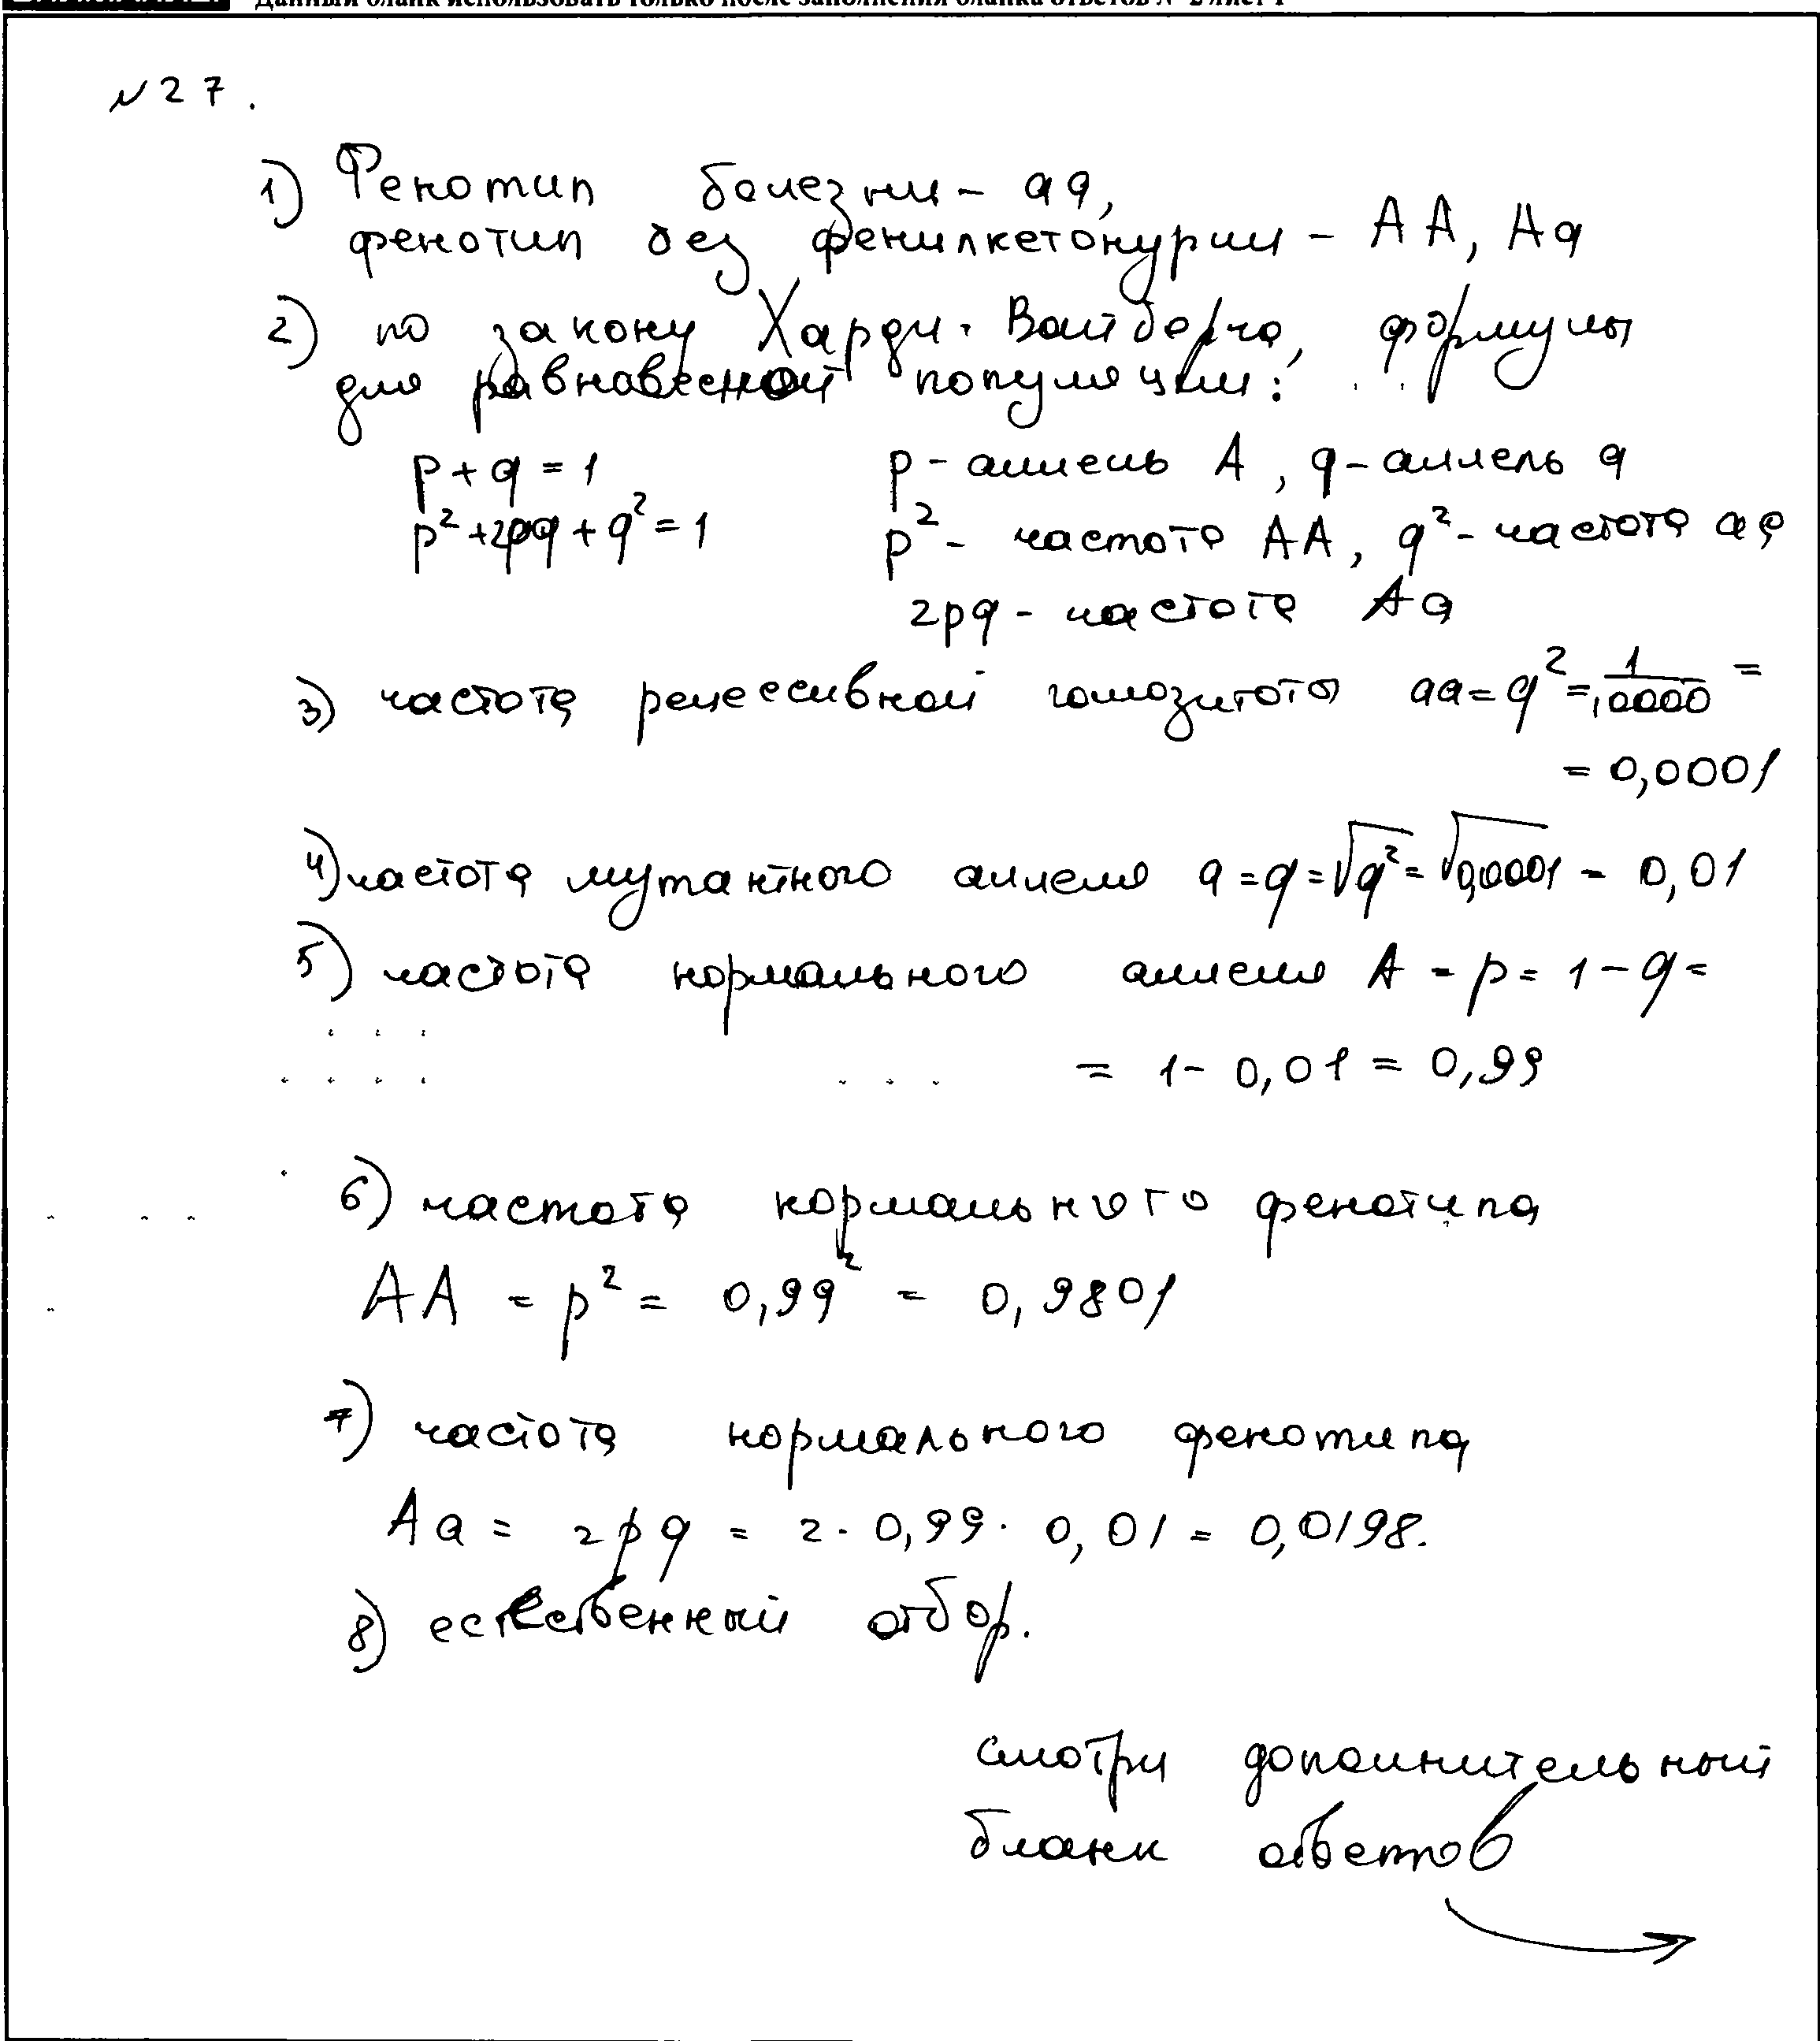 Данный бланк использовать только после заполнения бланка ответов № 2 лист 1
№27.
1) Фенотип болезни - аа,
фенотип без фенилкетонурии - АА, Аа
2) по закону Харди-Вайнберга, формулы
для равновесной популяции:
p + q = 1 p - аллель А, q - аллель а
p² + 2pq + q² = 1 p² - частота АА, q² - частота аа
2pq - частота Аа
3) частота рецессивной гомозиготы аа = q² = 1/10000 =
= 0,0001
4) частота мутантного аллеля а = q = √q² = √0,0001 = 0,01
5) частота нормального аллеля А = p = 1 - q =
= 1 - 0,01 = 0,99
6) частота нормального фенотипа
АА = p² = 0,99² = 0,9801
7) частота нормального фенотипа
Аа = 2pq = 2 · 0,99 · 0,01 = 0,0198.
8) естественный отбор.
смотри дополнительный
бланк ответов